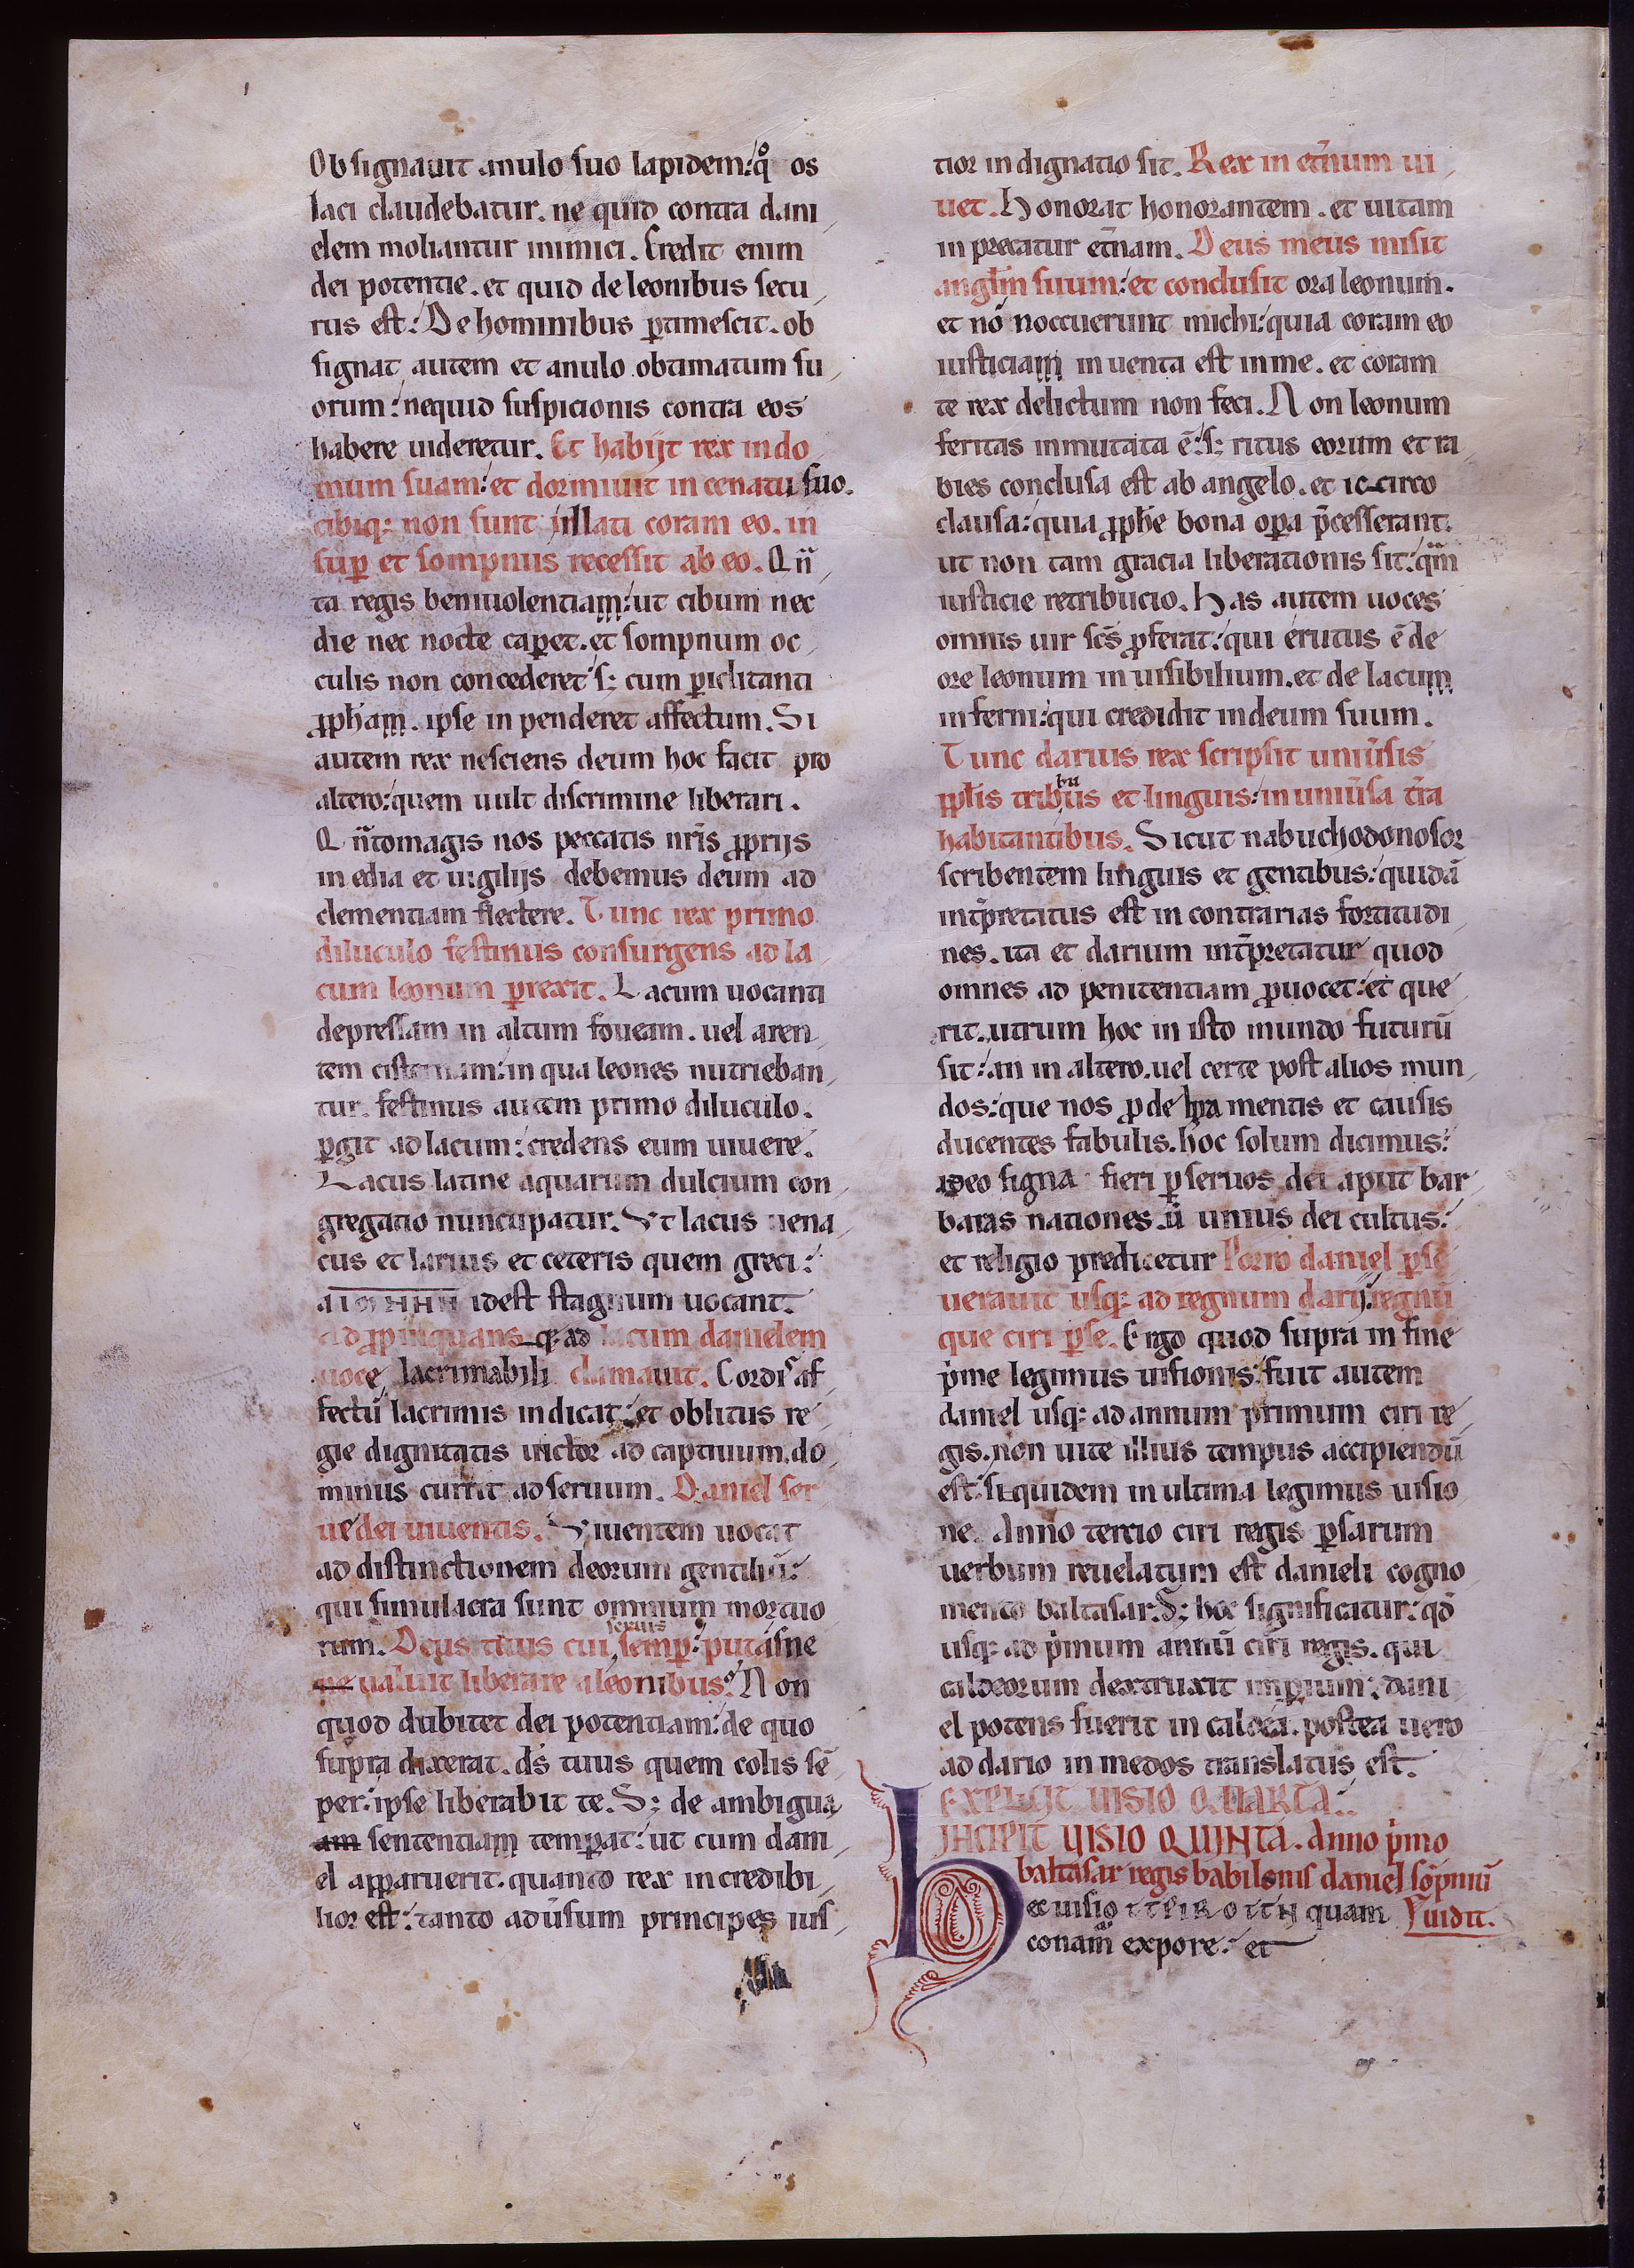 Ob signauit anulo suo lapidem: qͦ os
laci claudebatur. ne quid contra dani
elem moliantur inimici. Credit enim
dei potentie. et quid de leonibus secu
rus est: De hominibus ꝑtimescit. ob
signat autem et anulo obtimatum su
orum: nequid suspicionis contra eos
habere uideretur. Et habijt rex in do
mum suam: et dormiuit in cenatu suo.
cibiq; non sunt illati coram eo. in
suꝑ et sompnus recessit ab eo. Qn̄
ta regis beniuolentiam: ut cibum nec
die nec nocte caꝑet. et sompnum oc
culis non concederet s; cum ꝑiclitanti
ꝓpham. ipse in penderet affectum. Si
autem rex nesciens deum hoc facit pro
altero: quem uult discrimine liberari.
Qn̄to magis nos peccatis nr̄is ꝓprijs
in edia et uigilijs debemus deum ad
clementiam flectere. Tunc rex primo
diluculo festinus consurgens ad la
cum leonum ꝑrexit. Lacum uocanti
depressam in altum foueam. uel aren
tem cisternam: in qua leones nutrieban
tur. festinus autem primo diluculo.
ꝑgit ad lacum: credens eum uiuere.
Lacus latine aquarum dulcium con
gregatio nuncupatur. Vt lacus uena
cus et larius et ceteris quem greci:
idest stagnum uocant.
ad ꝓpinquans q; ad lacum danielem
uoce lacrimabili clamauit. Cordis af
fectū lacrimis indicat: et oblitus re
gie dignitatis uictor ad captiuum. do
minus currit ad seruum. Daniel ser
ue dei uiuentis. Viuentem uocat
ad distinctionem deorum gentiliū:
qui simulacra sunt omnium mortuo
rum. Deus tuus cui seruis semꝑ: putasne
ne ualuit liberare a leonibus? Non
quod dubitet dei potentiam: de quo
supra dixerat. ds̄ tuus quem colis sē
per: ipse liberabit te. S; de ambigua
am sententiam temꝑat: ut cum dani
el apparuerit. quanto rex incredibi
lior est: tanto adūsum principes ius
tior in dignatio sit. Rex in et̄num ui
uet. Honorat honorantem. et uitam
in precatur et̄nam. Deus meus misit
angl̄m suum: et conclusit ora leonum.
et nō noccuerunt michi: quia coram eo
iusticiam in uenta est in me. et coram
te rex delictum non feci. Non leonum
feritas inmutata ē: s; ritus eorum et ra
bies conclusa est ab angelo. et ic circo
clausa: quia ꝓphe bona oꝑa p̄cesserant.
ut non tam gracia liberationis sit: qm̄
iusticie retribucio. Has autem uoces
omnis uir scs̄ ꝓferat: qui erutus ē de
ore leonum in uisibilium. et de lacum
inferni: qui credidit in deum suum.
Tunc darius rex scripsit uniūsis
ppl̄is tribubus et linguis: in uniūsa t̄ra
habitantibus. Sicut nabuchodonosor
scribentem linguis et gentibus: quidā
int̄pretitus est in contrarias fortitudi
nes. ita et darium int̄pretatur quod
omnes ad penitentiam ꝓuocet: et que
rit. utrum hoc in isto mundo futurū
sit: an in altero. uel certe post alios mun
dos: que nos ꝓ de lira mentis et causis
ducentes fabulis. hoc solum dicimus:
ideo signa fieri ꝑ seruos dei aput bar
baras nationes. ū unius dei cultus:
et religio predicetur Porro daniel ꝑse
uerauit usq; ad regnum darij: regnū
que ciri ꝑse. Ergo quod supra in fine
p̄me legimus uisionis: fuit autem
daniel usq; ad annum primum ciri re
gis. non uite illius tempus accipiendū
est: siquidem in ultima legimus uisio
ne. Anno tercio ciri regis ꝑsarum
uerbum reuelatum est danieli cogno
mento baltasar. S; hoc significatur: qd̄
usq; ad p̄mum annū ciri regis. qui
caldeorum dextruxit imꝑium: dani
el potens fuerit in caldea. postea uero
ad dario in medos translatus est.
EXPLICIT UISIO QUARTA:
INCIPIT UISIO QUINTA. Anno p̄mo
baltasar regis babilonis daniel sōpniū
ec uisio quam uidit.
conam expore: et